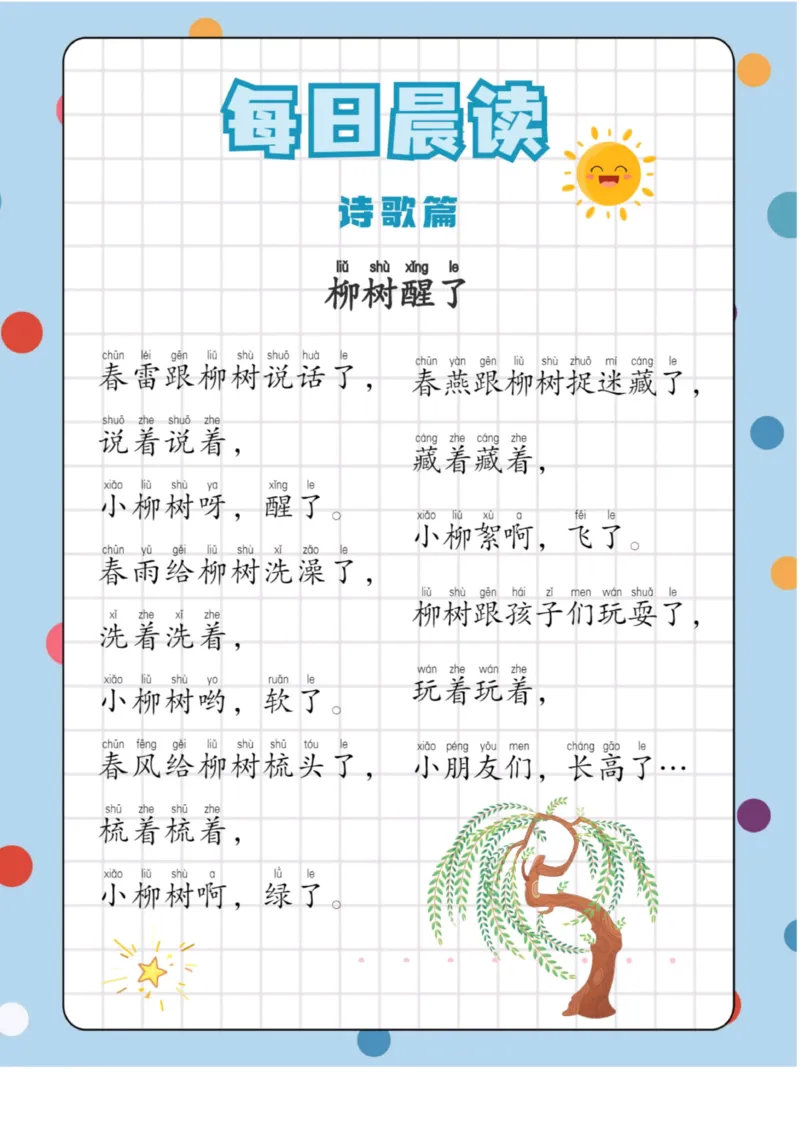 每日晨读
诗歌篇
liǔ shù xǐng le
柳树醒了
chūn léi gēn liǔ shù shuō huà le
春雷跟柳树说话了，
shuō zhe shuō zhe
说着说着，
xiǎo liǔ shù ya xǐng le
小柳树呀，醒了。
chūn yǔ gěi liǔ shù xǐ zǎo le
春雨给柳树洗澡了，
xǐ zhe xǐ zhe
洗着洗着，
xiǎo liǔ shù yo ruǎn le
小柳树哟，软了。
chūn fēng gěi liǔ shù shū tóu le
春风给柳树梳头了，
shū zhe shū zhe
梳着梳着，
xiǎo liǔ shù a lǜ le
小柳树啊，绿了。
chūn yàn gēn liǔ shù zhuō mí cáng le
春燕跟柳树捉迷藏了，
cáng zhe cáng zhe
藏着藏着，
xiǎo liǔ xù a fēi le
小柳絮啊，飞了。
liǔ shù gēn hái zǐ men wán shuǎ le
柳树跟孩子们玩耍了，
wán zhe wán zhe
玩着玩着，
xiǎo péng yǒu men cháng gāo le
小朋友们，长高了…